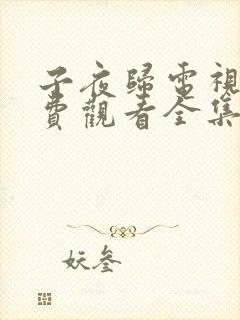 子夜歸電視
費觀看全集
妖叁